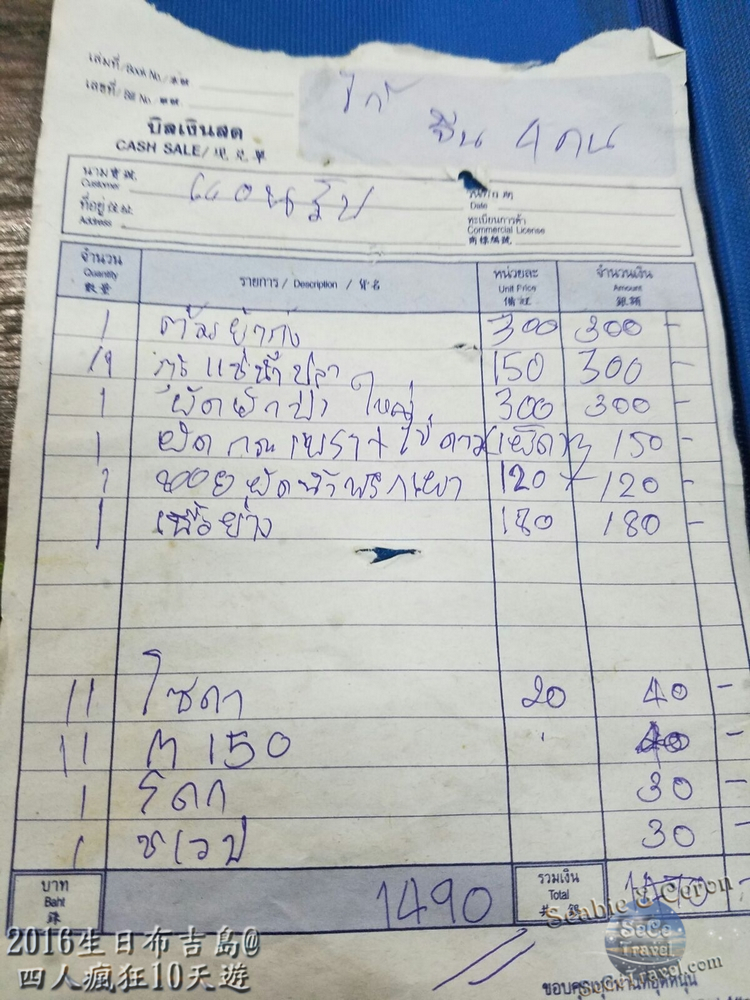 เล่มที่/Book No./本號
เลขที่/Bill No./號碼
บิลเงินสด
CASH SALE/現兌單
ไกด์
จีน 4 คน
นาม 寶號
Customer
ที่อยู่ 住址
Address
วันที่
Date
ทะเบียนการค้า
Commercial License
商標編號
จำนวน
Quantity
數量
รายการ / Description / 貨名
หน่วยละ
Unit Price
價錢
จำนวนเงิน
Amount
銀額
1 ต้มยำกุ้ง 300 300 -
11 กุ้งแช่น้ำปลา 150 300 -
1 ผัดผัก ใหญ่ 300 300 -
1 ผัดกะเพรา+ไข่ดาว 150 -
1 หอยผัดน้ำพริกเผา 120 120 -
1 เนื้อย่าง 180 180 -
11 โซดา 20 40 -
11 M 150 40 -
1 30 -
1 30 -
บาท
Baht
銖
1490
รวมเงิน
Total
共銀
ขอบคุณทุกท่านที่อุดหนุน
Seabie & Ceron
SeCe
Travel
SeCeTravel.com
2016生日布吉島@
四人瘋狂10天遊